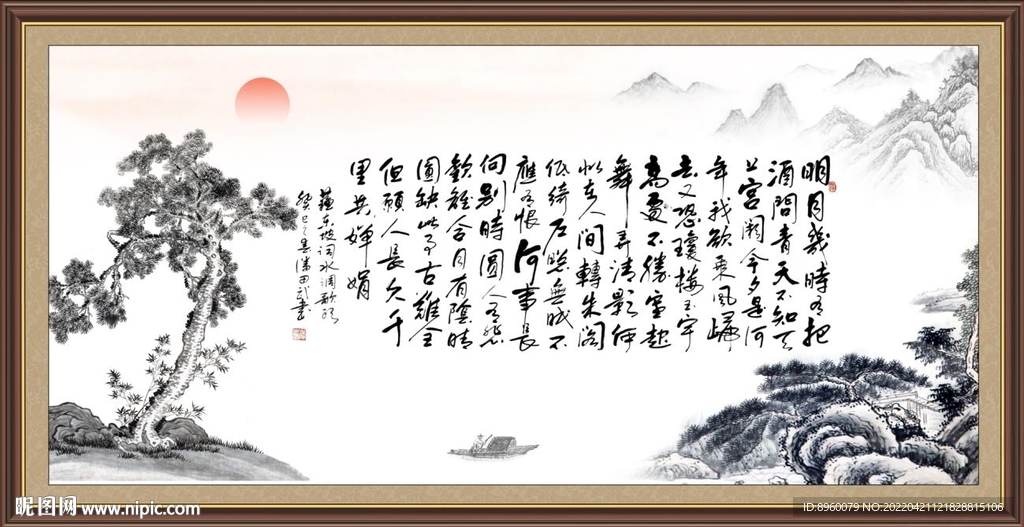 明月幾時有把
酒問青天不知天
上宮闕今夕是何
年我欲乘風歸
去又恐瓊樓玉宇
高處不勝寒起
舞弄清影何
似在人間轉朱閣
低綺戶照無眠不
應有恨何事長
向别時圓人有悲
歡離合月有陰晴
圓缺此事古難全
但願人長久千
里共嬋娟
蘇東坡詞水調歌頭
癸巳之
昵图网 www.nipic.com
ID:8960079 NO:20220421121828815106